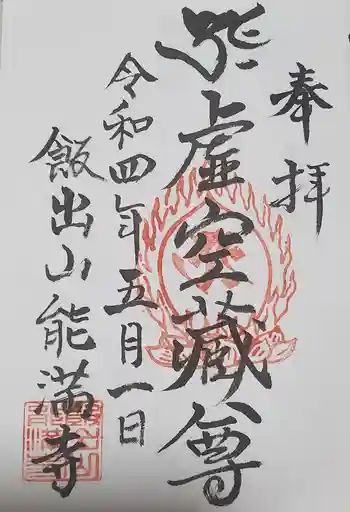 奉拝
虚空蔵尊
令和四年五月一日
飯出山能満寺